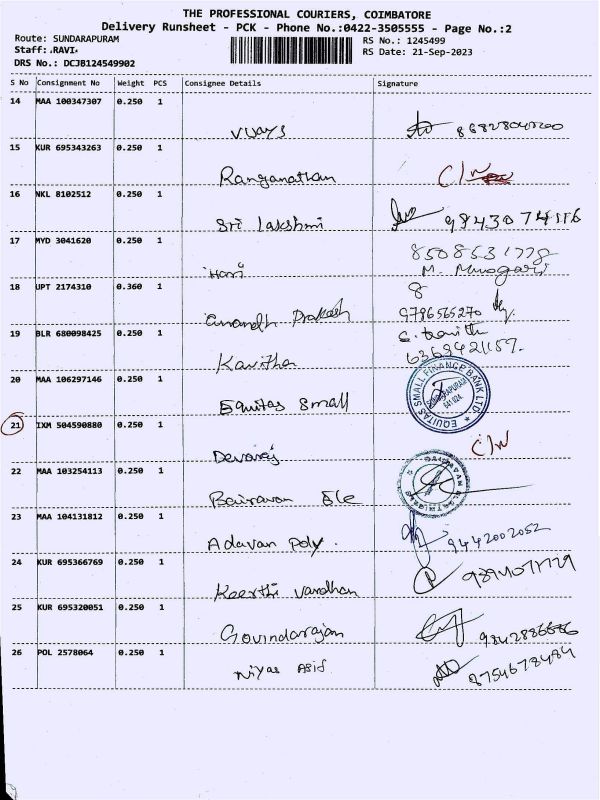 THE PROFESSIONAL COURIERS, COIMBATORE
Delivery Runsheet - PCK - Phone No.:0422-3505555 - Page No.:2
Route: SUNDARAPURAM
RS No.: 1245499
Staff: .RAVI.
RS Date: 21-Sep-2023
DRS No.: DCJB124549902
S No Consignment No Weight PCS Consignee Details Signature
14 MAA 100347307 0.250 1
15 KUR 695343263 0.250 1
Ranganathan C/N
16 NKL 8102512 0.250 1
Sri Lakshmi
17 MYD 3041620 0.250 1
8508531778
Hari
18 UPT 2174310 0.360 1
Anandh Prakash 9796565270
19 BLR 680098425 0.250 1
Kavitha 6369421159.
20 MAA 106297146 0.250 1
Equitas Small EQUITAS SMALL FINANCE BANK LTD.
21 IXM 504590880 0.250 1
Devaraj C/N
22 MAA 103254113 0.250 1
Bairavan Ele
23 MAA 104131812 0.250 1
Adavan Poly. 9442002052
24 KUR 695366769 0.250 1
Keerthi Vardhan
25 KUR 695320051 0.250 1
Govindarajan
26 POL 2578064 0.250 1
Niyas Asif 8754678484